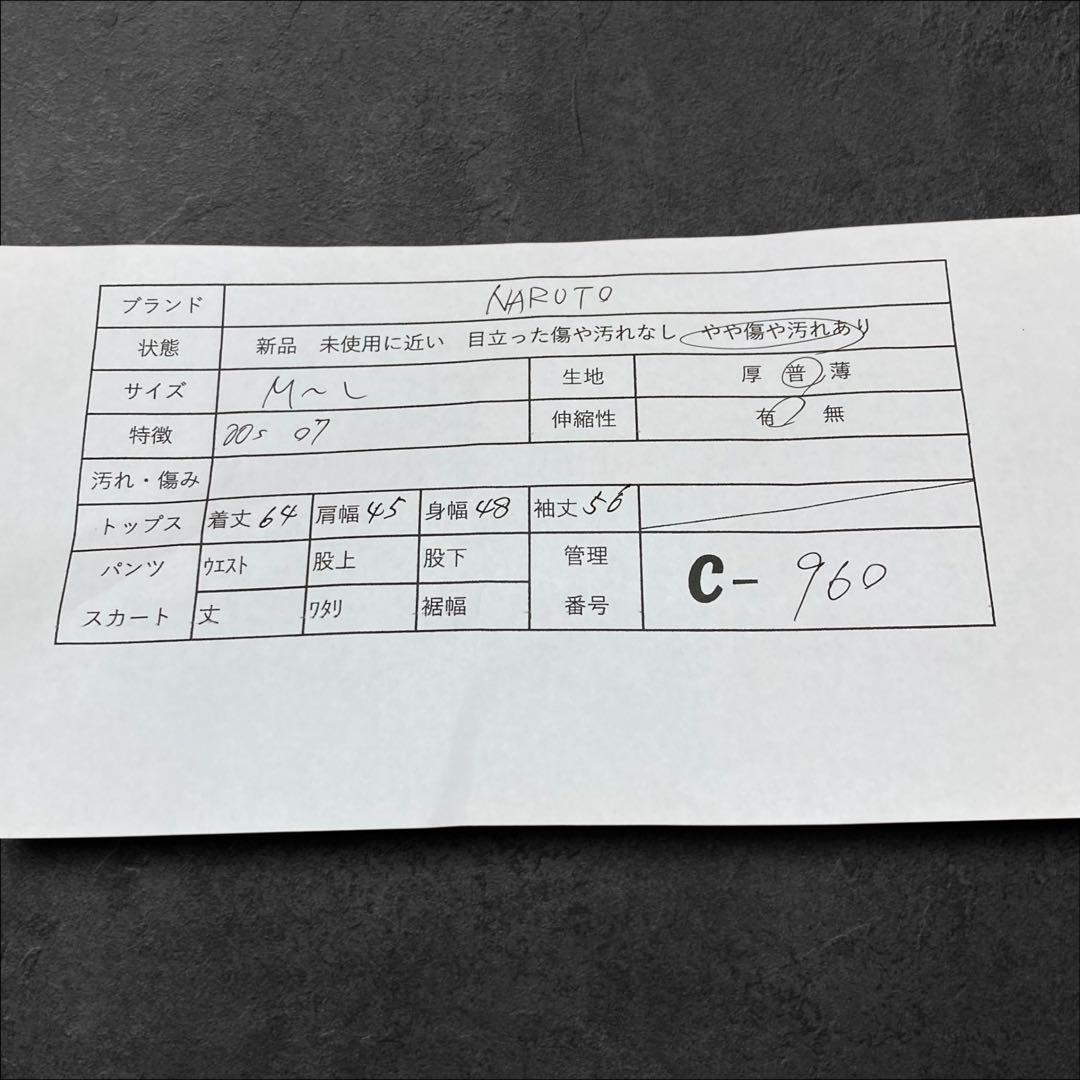 ブランド NARUTO
状態 新品 未使用に近い 目立った傷や汚れなし やや傷や汚れあり
サイズ M～L 生地 厚 普 薄
特徴 00s 07 伸縮性 有 無
汚れ・傷み
トップス 着丈 64 肩幅 45 身幅 48 袖丈 56
パンツ ウエスト 股上 股下 管理
スカート 丈 ワタリ 裾幅 番号
C- 960